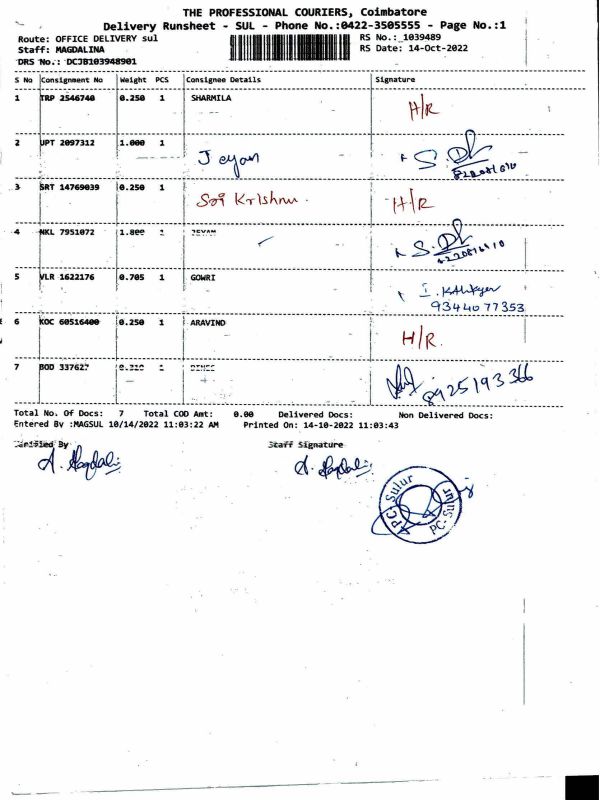 THE PROFESSIONAL COURIERS, Coimbatore
Delivery Runsheet - SUL - Phone No.:0422-3505555 - Page No.:1
Route: OFFICE DELIVERY sul RS No.: 1039489
Staff: MAGDALINA RS Date: 14-Oct-2022
DRS No.: DCJB103948901
S No Consignment No Weight PCS Consignee Details Signature
1 TRP 2546740 0.250 1 SHARMILA H/R
2 UPT 2097312 1.000 1 Jeyan S.
3 SRT 14769039 0.250 1 Sri Krishnu. H/R
4 NKL 7951072 1.800 1 S.
5 VLR 1622176 0.705 1 GOWRI I.
9344077353
6 KOC 60516400 0.250 1 ARAVIND H/R.
7 BOD 337627 1 8925193366
Total No. Of Docs: 7 Total COD Amt: 0.00 Delivered Docs: Non Delivered Docs:
Entered By :MAGSUL 10/14/2022 11:03:22 AM Printed On: 14-10-2022 11:03:43
Verified By Staff Signature
PC-Sulur
PC-Sulur